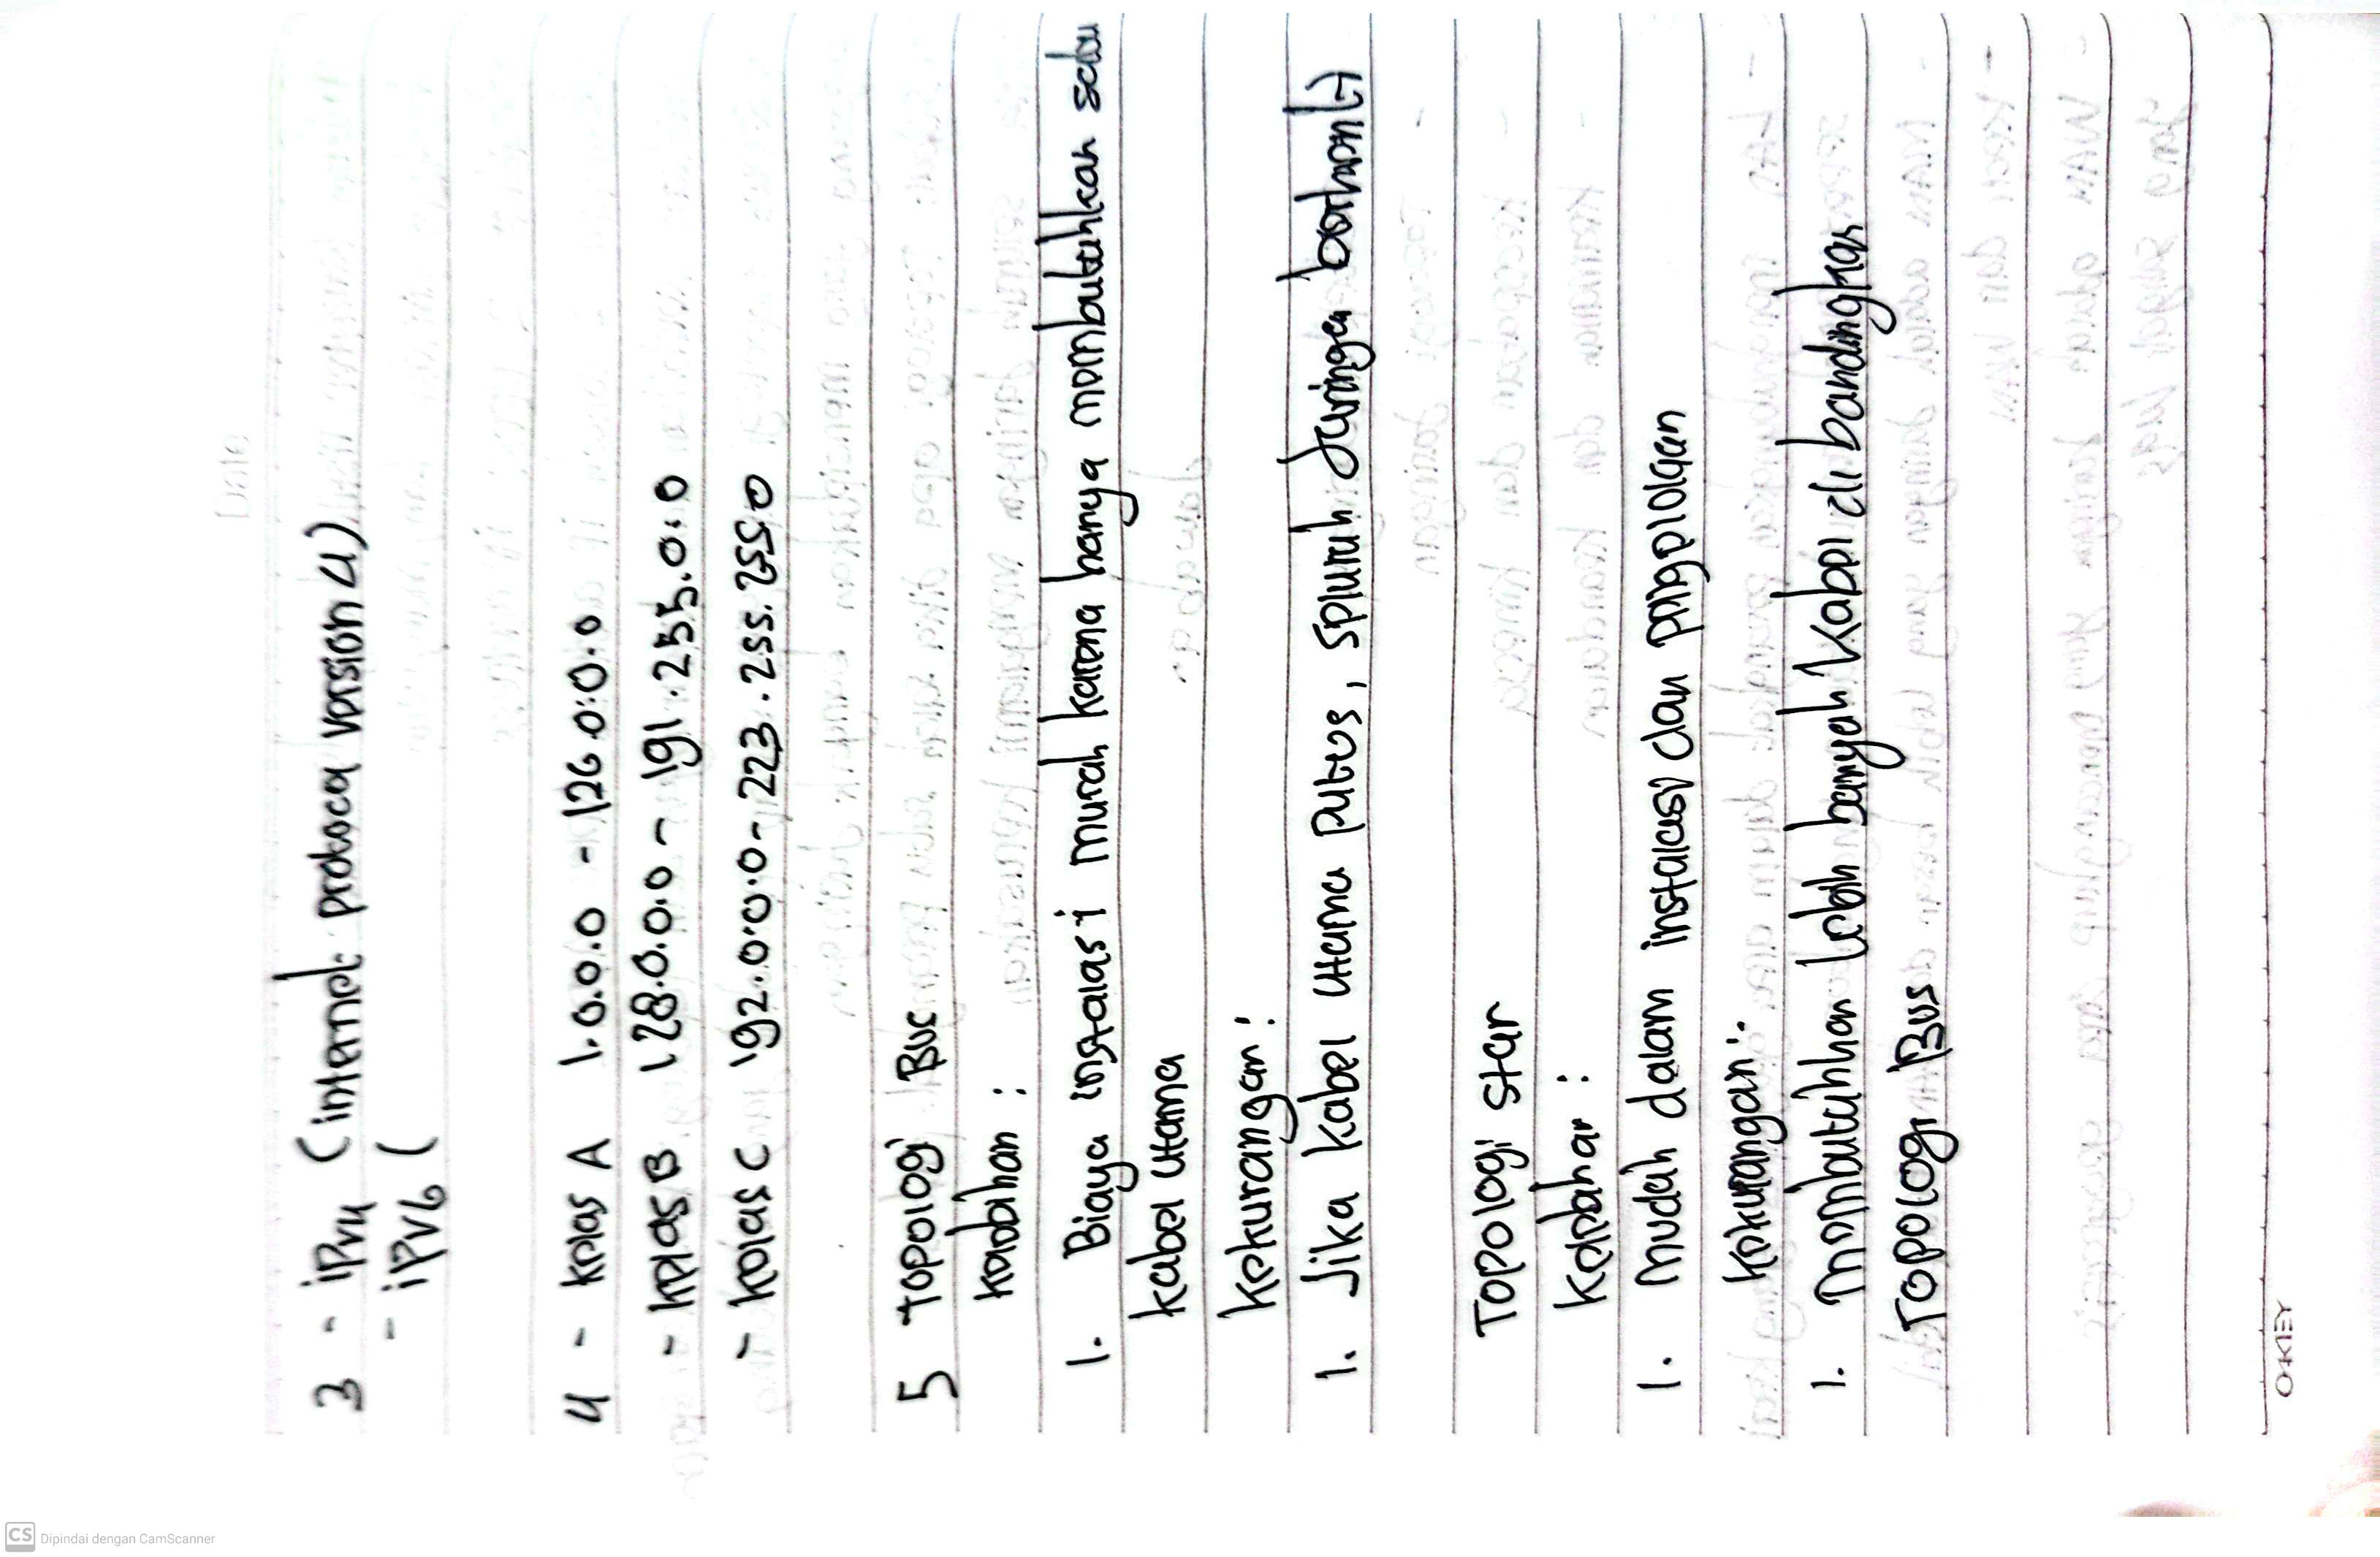 3 - iPv4 (internet protocol version 4)
- iPV6 (
4 - kelas A 1.0.0.0 - 126.0.0.0
- kelas B 128.0.0.0 - 191.255.0.0
- kelas C 192.0.0.0 - 223.255.255.0
5 topologi Bus
kelebihan :
1. Biaya instalasi murah karena hanya membutuhkan satu
kabel utama
kekurangan :
1. Jika kabel utama putus, seluruh Jaringa berhenti
Topologi star
Kelebihan :
1. mudah dalam instalasi dan pengelolaan
kekurangan :
1. membutuhkan lebih banyak kabel di bandingkan
Topologi Bus
OKEY
CS Dipindai dengan CamScanner